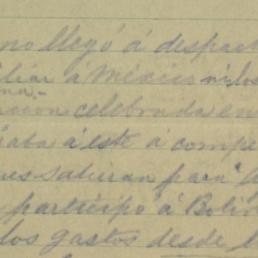 no llegó á despac
iliar á México ni los
na.-
ración celebrada en
iaba á este á compe
res saturan para
participó á Boli
los gastos desde l